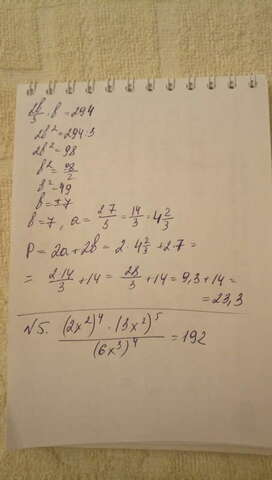 2b/3 · b = 294
2b² = 294·3
2b² = 98
b² = 98/2
b² = 49
b = ±7
b = 7, a = 2·7/3 = 14/3 = 4 2/3
P = 2a + 2b = 2 · 4 2/3 + 2·7 =
= 2·14/3 + 14 = 28/3 + 14 = 9,3 + 14 =
= 23,3
№5. (2x²)⁴ · (3x²)⁵ / (6x³)⁴ = 192